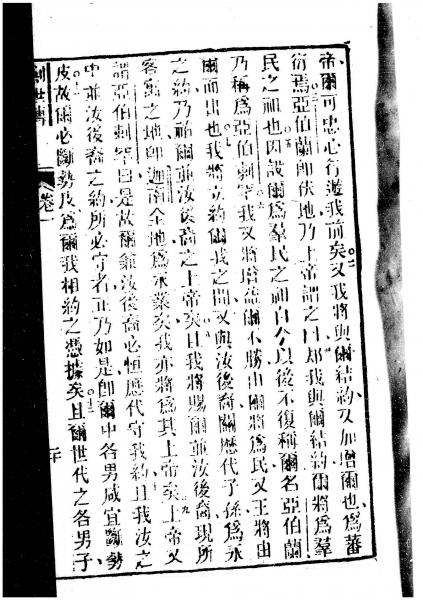 帝爾可忠心行邇我前矣又我將與爾結約又加增爾也為蕃
衍焉亞伯蘭卽伏地乃上帝謂之曰却我與爾結約爾將為羣
民之祖也因設爾為羣民之祖自今以後不復稱爾名亞伯蘭
乃稱為亞伯剌罕我又將增益爾不勝由爾將為民又王將由
爾而出也我將立約爾我之間又與汝後裔關歷代子孫為永
之約乃祐爾並汝後裔之上帝矣且我將賜爾並汝後裔現所
客寓之地卽迦南全地為永業矣我亦將為其上帝矣上帝又
謂亞伯剌罕曰是故爾兼汝後裔必恒歷代守我約且我汝之
中並汝後裔之約所必守者正乃如是卽爾中各男咸宜斷勢
皮故爾必斷勢皮為爾我相約之憑據矣且爾世代之各男子
創世書 卷一 二十